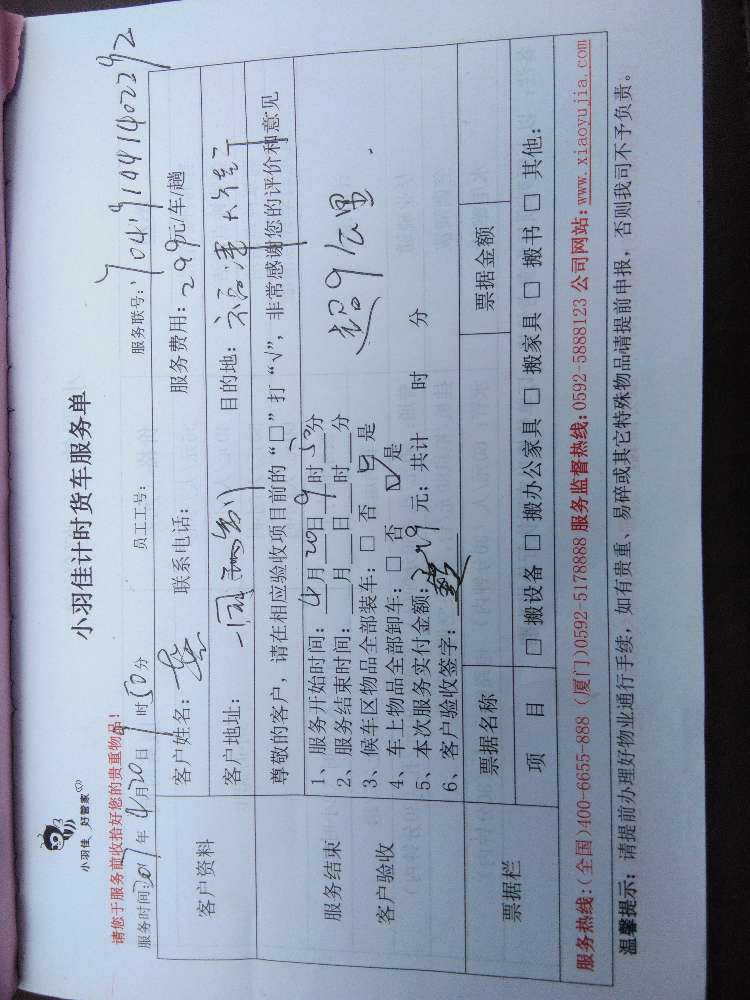 小羽佳 好管家
小羽佳计时货车服务单
请您于服务前收拾好您的贵重物品!
服务时间: 年 4月20日 9时50分 员工工号: 服务联号: 704191441402292
客户资料
客户姓名: 联系电话: 服务费用: 299元/车/趟
客户地址: 目的地:
服务结束
客户验收
尊敬的客户，请在相应验收项目前的“□”打“√”，非常感谢您的评价和意见
1、服务开始时间: 4月20日9时50分
2、服务结束时间: 月 日 时 分
3、候车区物品全部装车: □ 否 是
4、车上物品全部卸车: □ 否 是
5、本次服务实付金额: 元: 共计 时 分
6、客户验收签字:
超9公里.
票据栏
票据名称 票据金额
项 目 □ 搬设备 □ 搬办公家具 □ 搬家具 □ 搬书 □ 其他:
服务热线:(全国)400-6655-888 (厦门)0592-5178888 服务监督热线:0592-5888123 公司网站:www.xiaoyujia.com
温馨提示: 请提前办理好物业通行手续，如有贵重、易碎或其它特殊物品请提前申报，否则我司不予负责。